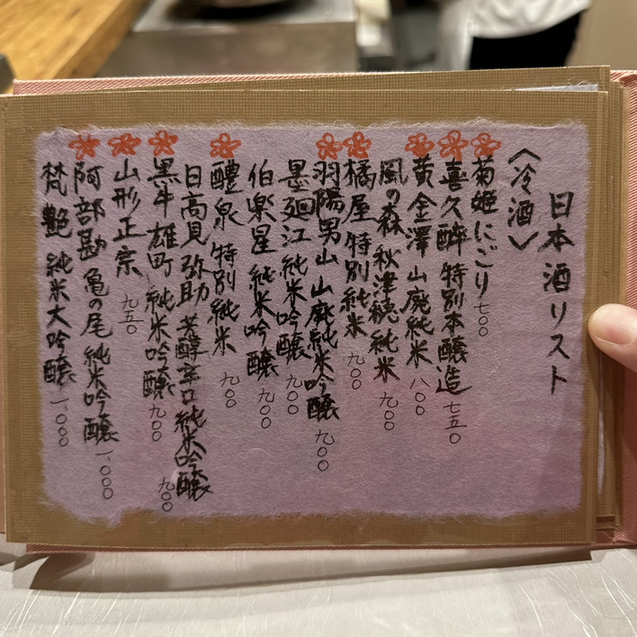 日本酒リスト
〈冷酒〉
菊姫にごり 七〇〇
喜久酔 特別本醸造 七五〇
黄金澤 山廃純米 八〇〇
風の森 秋津穂 純米 九〇〇
橘屋 特別純米 九〇〇
羽陽男山 山廃純米吟醸 九〇〇
墨廼江 純米吟醸 九〇〇
伯楽星 純米吟醸 九〇〇
醴泉 特別純米 九〇〇
日高見 弥助 芳醇辛口純米吟醸 九〇〇
黒牛 雄町 純米吟醸 九〇〇
山形正宗 九五〇
阿部勘 亀の尾 純米吟醸 一、〇〇〇
梵 艶 純米大吟醸 一、〇〇〇